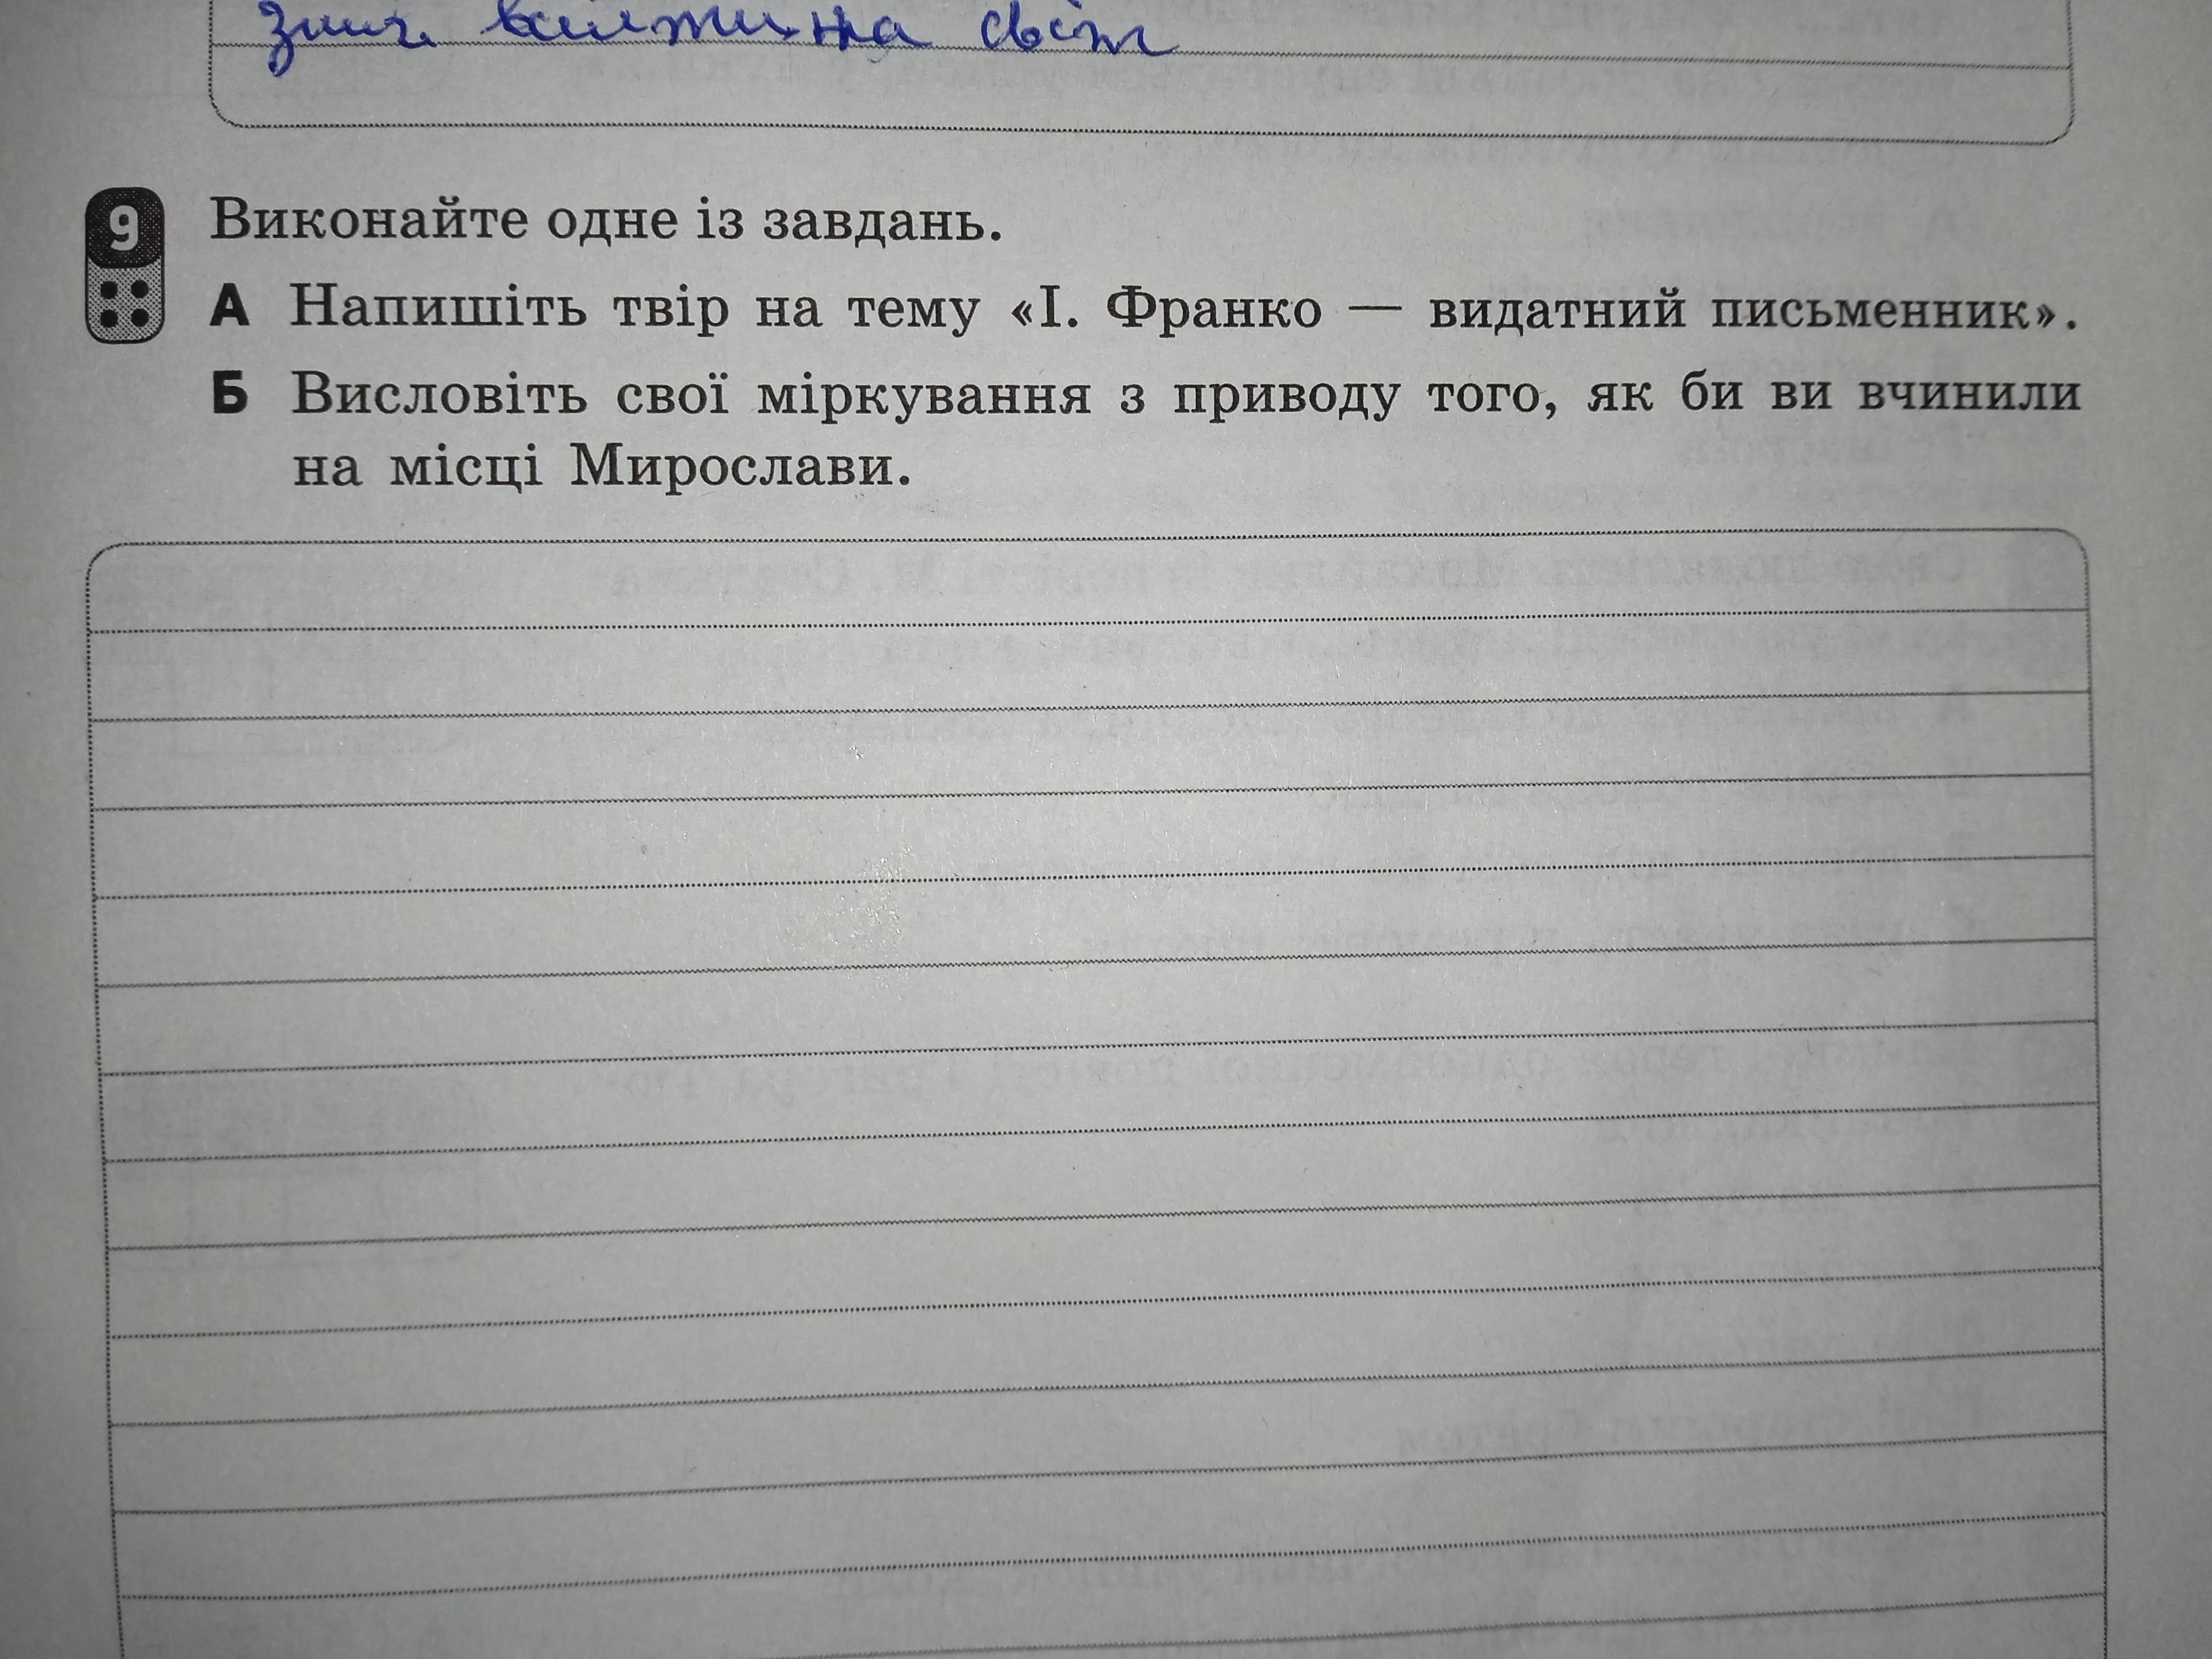 на світ
9 Виконайте одне із завдань.
А Напишіть твір на тему «І. Франко — видатний письменник».
Б Висловіть свої міркування з приводу того, як би ви вчинили
на місці Мирослави.